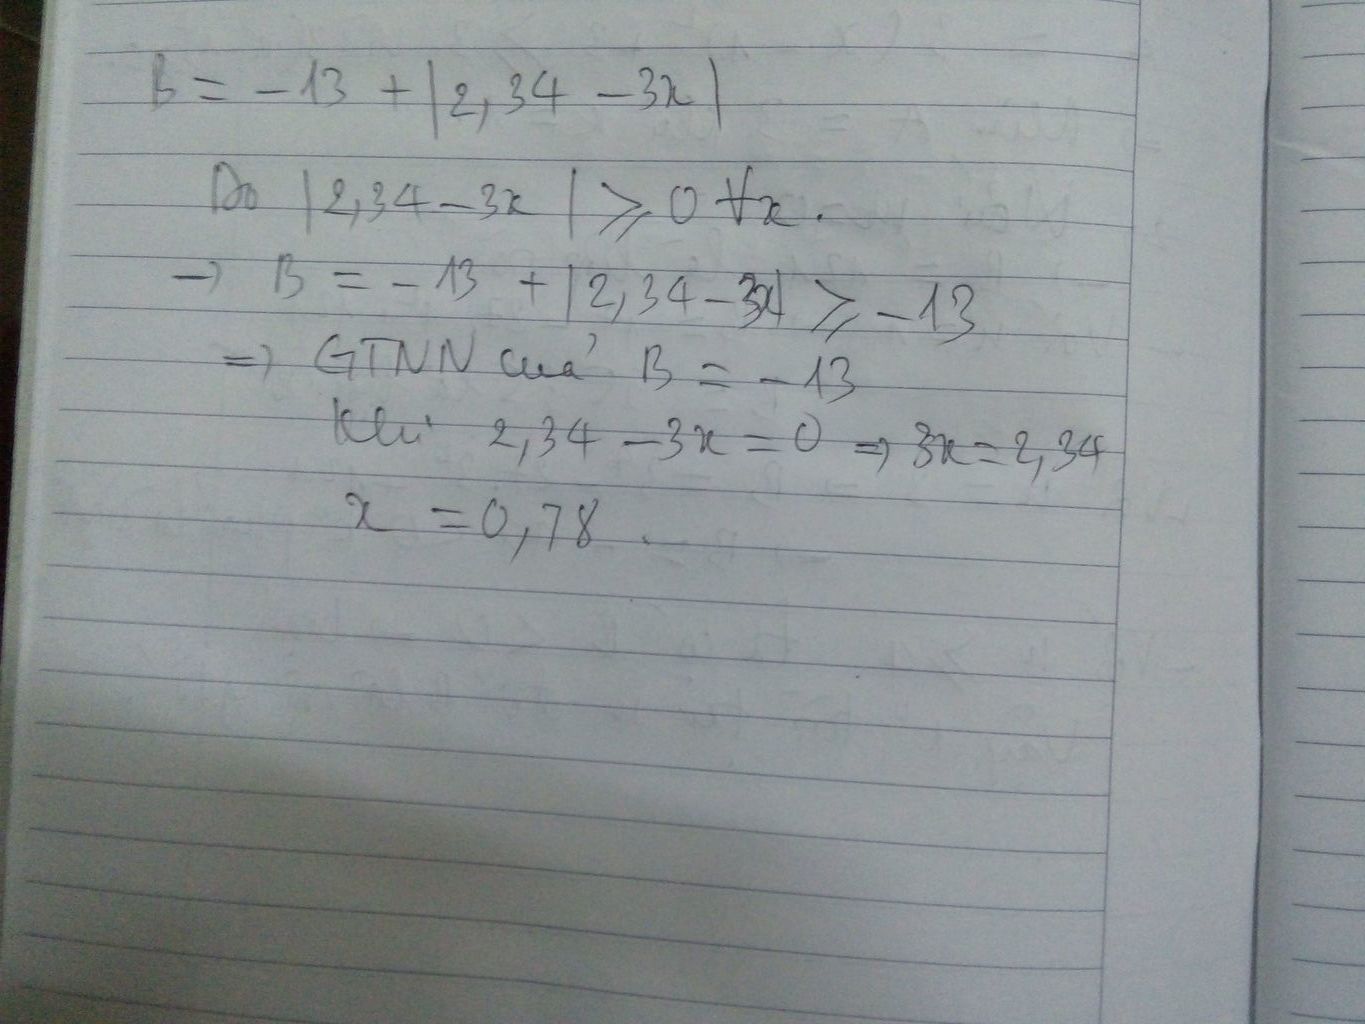 B = -13 + |2,34 - 3x|
Do |2,34 - 3x| ⩾ 0 ∀x.
→ B = -13 + |2,34 - 3x| ⩾ -13
⇒ GTNN của B = -13
Khi 2,34 - 3x = 0 ⇒ 3x = 2,34
x = 0,78.